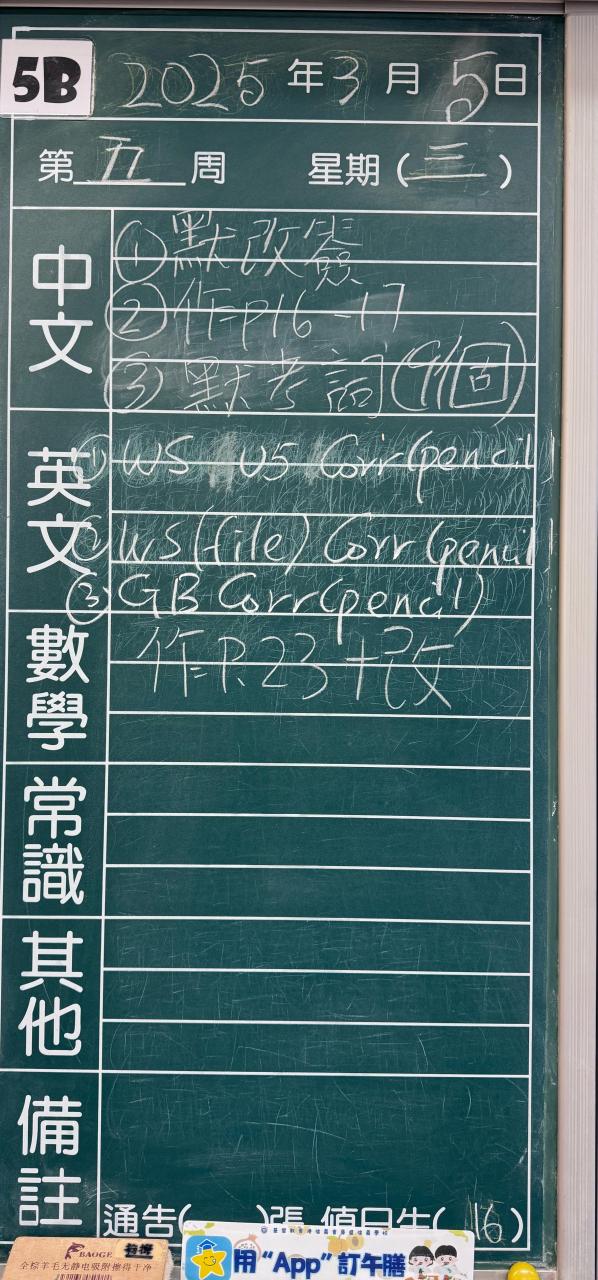 5B 2025年3月5日
第五周 星期(三)
中文
①默改簽
②作P16-17
③默考詞(9個)
英文
①WS U5 Corr(pencil)
②WS(file) Corr(pencil
③GB Corr(pencil)
數學
作P.23+改
常識
其他
備註
通告( )張 值日生(16)
BAOGE
全棕羊毛无静电吸附擦得干净
用“App”訂午膳